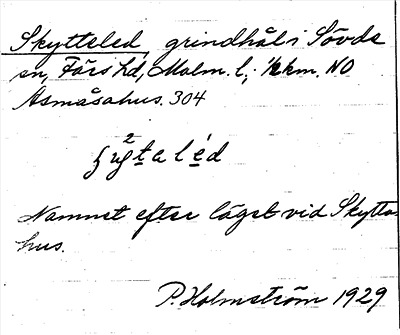 Skytteled, grindhål i Sövde
sn, Färs hd, Malm. l.; ½ km. NO
Åsmåsahus. 304
Namnet efter läget vid Skytta-
hus.
P. Holmström 1929